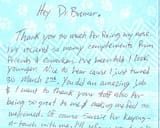 Hey Dr Bremer,
Thank you so much for fixing my nose.
I've received so many complements from
friends & coworkers. I've been told I look
younger. Nice to hear cause I just turned
on March 25. You did an amazing job
& I want to thank your staff also for
being so great to me & making me feel so
welcomed. Of course Susie for keeping
in touch with me. I'll